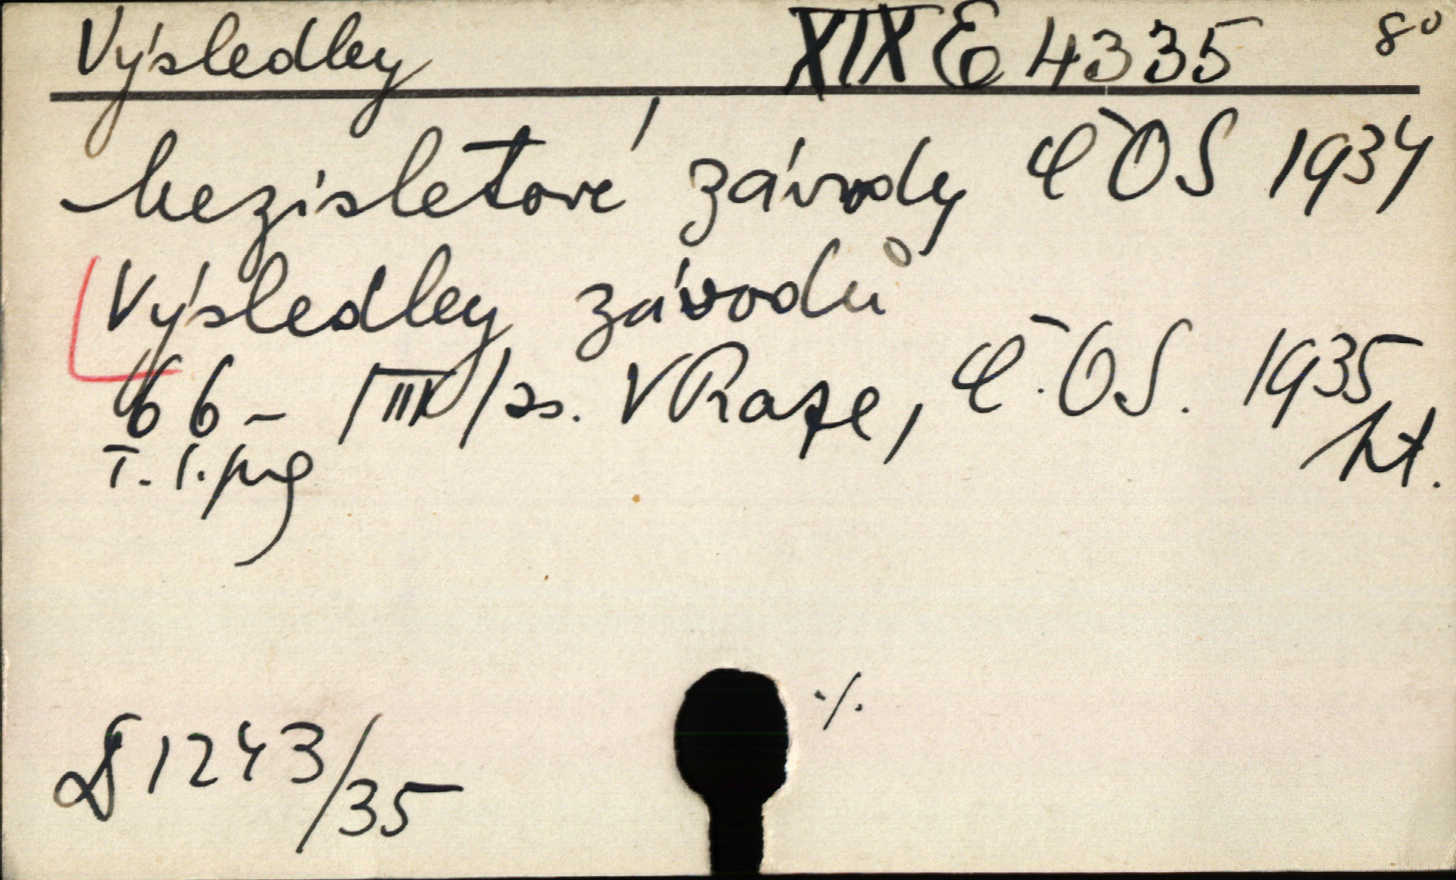 Výsledky XIX E 4335 8°
bezisletové závody ČOS 1934
Výsledky závodů
66- |IIIX|2s. V Praze, Č.O.S. 1935
ht.
I. I.
S 1243/35
·/.